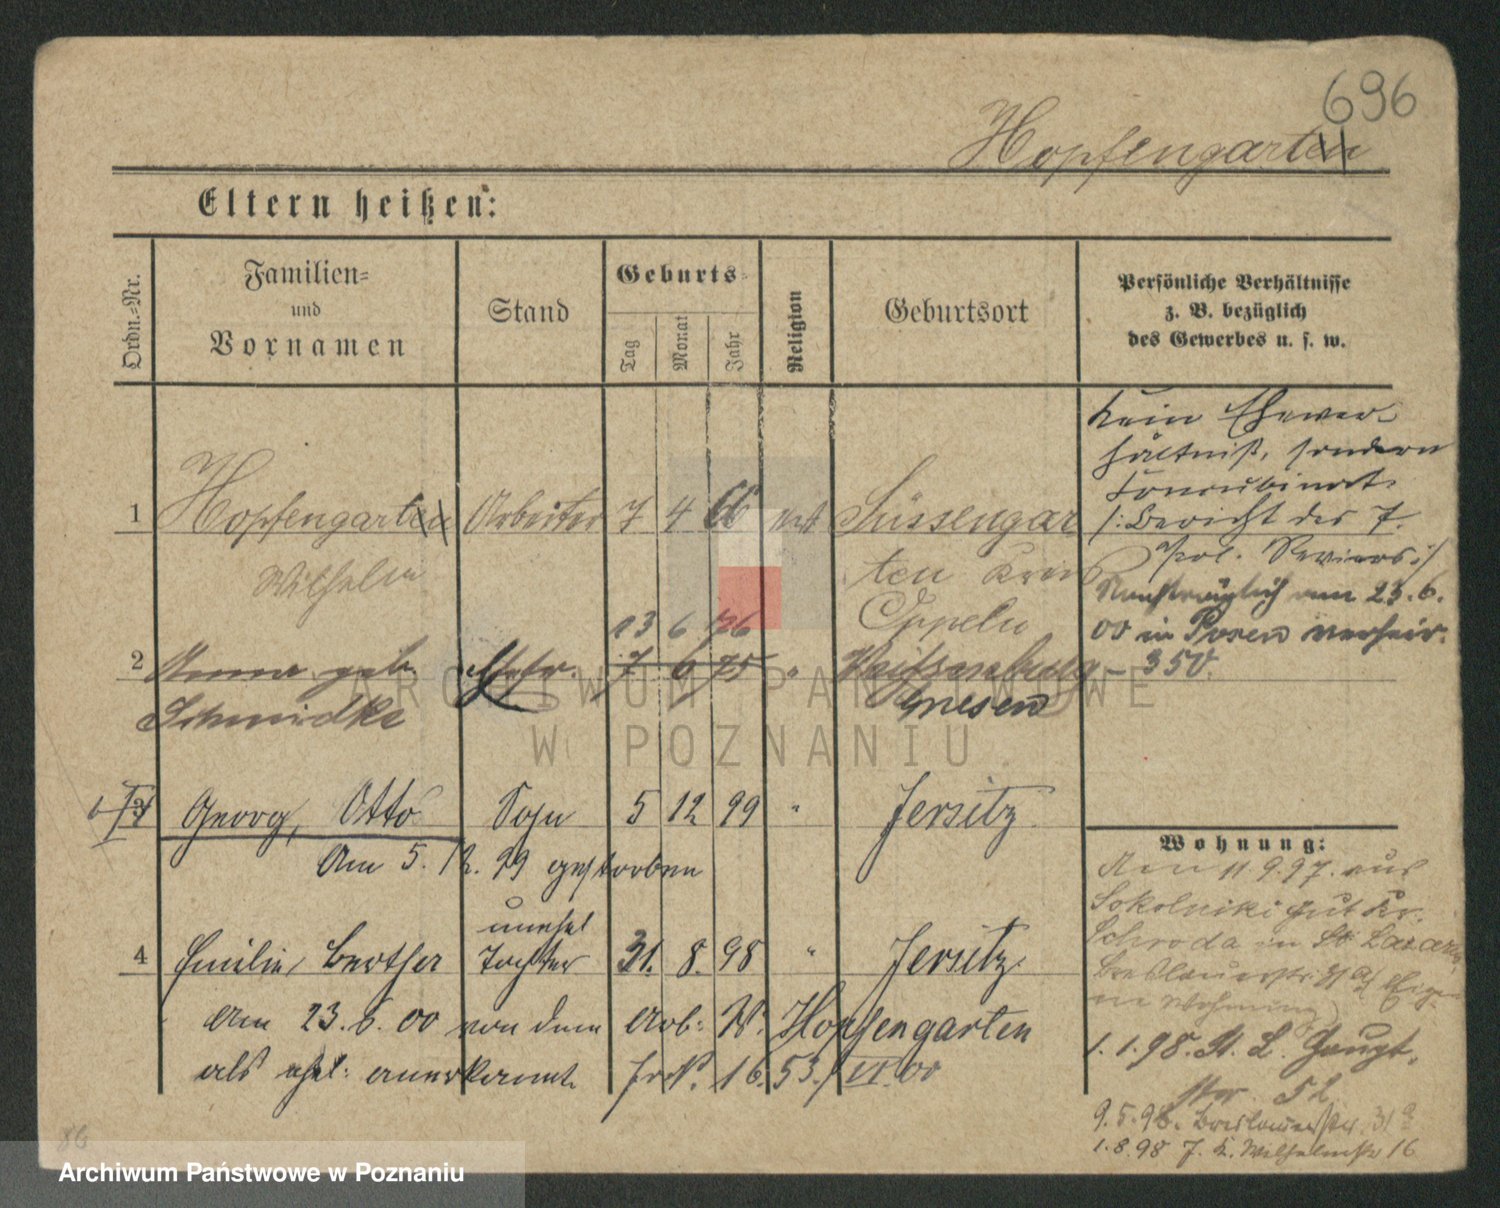 696
Hopfengarten
Eltern heißen:
Ordn.-Nr.
Familien-
und
Vornamen
Stand
Geburts-
Tag
Monat
Jahr
Religion
Geburtsort
Persönliche Verhältnisse
z. B. bezüglich
des Gewerbes u. s. w.
Kein Ehever-
hältniß, sondern
Concubinat.
/: Bericht des 7.
Pol. Reviers :/
Nachträglich am 23.6.
00 in Posen verheir.
- 350.
1 Hopfengarten Arbeiter 7 4 66 Süssengar
Wilhelm ten Kreis
Oppeln
13 6 76
2 Anna geb. Ehefr. 7 6 75 " Weissenburg
Schmidtke Gnesen
3 Georg, Otto Sohn 5 12 99 " Jersitz
Am 5. 12. 99 gestorben
unehel
4 Emilie, Bertha Tochter 31. 8. 98 " Jersitz.
Am 23. 6. 00 von dem Arb. W. Hopfengarten
als ehel. anerkannt 16 53./VI.00
Wohnung:
Am 11.9.97. aus
Sokolniki gut Kr.
Schroda in St Lazarus
Breslauerstr. 31
Wohnung
1.1.98. St. L. Haupt-
str. 52
9.5.98. Breslauerstr. 31 a
1.8.98 J. K. Wilhelmstr 16
86
ARCHIWUM PAŃSTWOWE
W POZNANIU
Archiwum Państwowe w Poznaniu